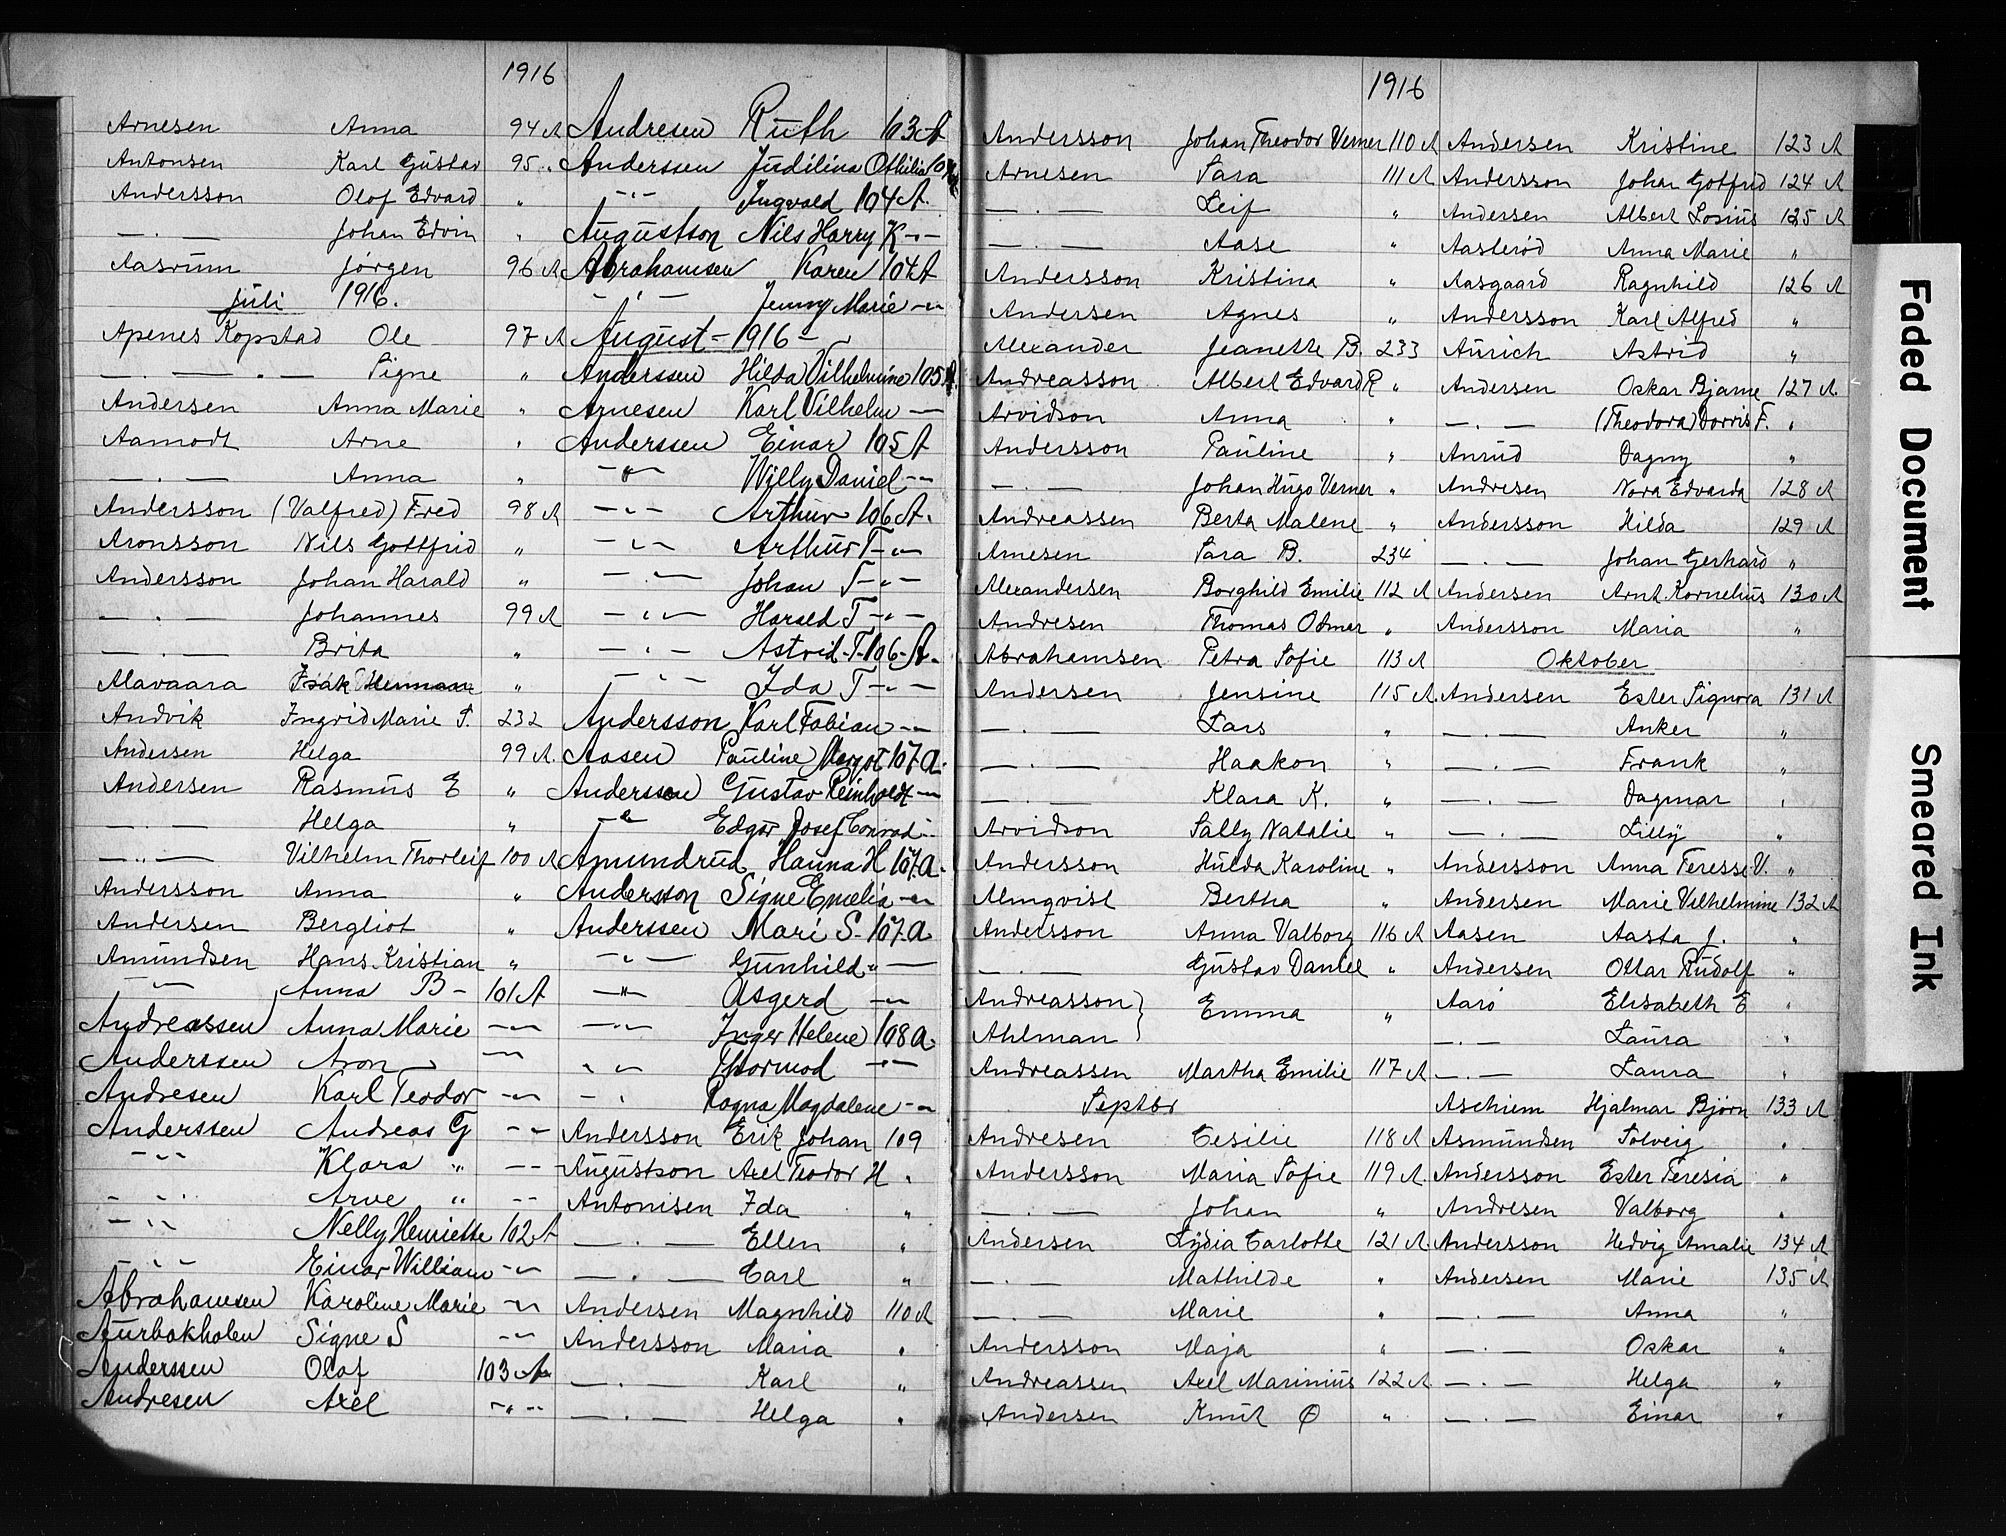 1916
Arnesen Anna 94 A
Antonsen Karl Gustav 95 "
Andersson Olof Edvard "
— . — Johan Edvin "
Aasrum Jørgen 96 A
Juli 1916.
Apenes Kopstad Ole 97 A
— . — . — Signe "
Andersen Anna Marie "
Aamodt Arne "
— . — Anna "
Andersson (Valfred) Fred 98 A
Aronsson Nils Gottfrid "
Andersson Johan Harald "
— . — Johannes 99 A
— . — Brita "
Alavaara Isak Herman "
Andvik Ingrid Marie S. 232
Andersen Helga 99 A.
Andersen Rasmus E "
— . — Helga "
— " — Vilhelm Thorleif 100 A
Andersson Anna "
Andersen Bergliot "
Amundsen Hans Kristian "
— " — Anna B - 101 A
Andreassen Anna Marie — " —
Anderssen Aron — " —
Andresen Karl Teodor — " —
Anderssen Andreas G — " —
— " — Klara " — " —
— " — Arve " — " —
— " — Nelly Henriette 102 A
— " — Einar William — " —
Abrahamsen Karoline Marie — " —
Aurbakholen Signe S — " —
Anderssen Olaf 103 A
Andresen Axel — " —
Andresen Ruth 103 A
Anderssen Judilina Othilia
— " — Ingvald 104 A.
Augustson Nils Harry K — " —
Abrahamsen Karen 104 A
— " — Jenny Marie — " —
August - 1916 -
Anderssen Hilda Vilhelmine 105 A.
Arnesen Karl Vilhelm —
Anderssen Einar 105 A
— " — Willy Daniel — " —
— " — Arthur 106 A.
— " — Arthur T — " —
— " — Johan T — " —
— " — Harald T — " —
— " — Astrid T. 106 A.
— " — Ida T — " —
Andersson Karl Fabian — " —
Aasen Pauline Margot 107 a.
Andersson Gustav Reinholdt — " —
— " — Edgar Josef Conrad — " —
Amundrud Hanna H 107 a.
Andersson Signe Emelia — " —
Anderssen Mari S. 107 a
— " — Gunhild " —
— " — Asgerd — " —
— " — Inger Helene 108 a.
— " — Thormod — " —
— " — Ragna Magdalene — " —
Andersson Erik Johan 109
Augustson Axel Teodor H "
Antonisen Ida "
— . — Ellen "
— . — Carl "
Andersen Magnhild 110 A
Andersson Maria "
— . — Karl "
— . — Helga "
1916
Andersson Johan Theodor Verner 110 A
Arnesen Sara 111 A
— . — Leif "
— . — Aase "
Andersson Kristina "
Andersen Agnes "
Alexander Jeanette B. 233
Andreasson Albert Edvard R "
Arvidson Anna "
Andersson Pauline "
— . — Johan Hugo Verner "
Andreassen Berta Malene "
Arnesen Sara B. 234
Alexandersen Borghild Emilie 112 A
Andresen Thomas Otmar "
Abrahamsen Petra Sofie 113 A
Andersen Jensine 115 A
— . — Lars "
— . — Haakon "
— . — Klara K. "
Arvidson Sally Natalie "
Andersson Hulda Karoline "
Almqvist Bertha "
Andersson Anna Valborg 116 A
— . — Gustav Daniel "
Andreasson } Emma "
Ahlman }
Andreassen Martha Emilie 117 A
Septbr
Andresen Cesilie 118 A
Andersson Maria Sofie 119 A.
— . — Johan "
Andersen Lydia Carlotte 121 A
— . — Mathilde "
— . — Marie "
Andersson Maja "
Andreassen Axel Marinius 122 A
Andersen Knut Ø "
Andersen Kristine 123 A
Andersson Johan Gotfred 124 A
Andersen Albert Losius 125 A
Aasterød Anna Marie "
Aasgaard Ragnhild 126 A
Andersson Karl Alfred "
Aurich Astrid "
Andersen Oskar Bjarne 127 A.
— . — (Theodora) Dorris F. "
Anrud Dagny "
Andresen Nora Edvarda 128 A
Andersson Hilda 129 A
— . — Johan Gerhard "
Andersen Arnt Kornelius 130 A
Andersson Maria "
Oktober
Andersen Ester Signora 131 A
— . — Anker "
— . — Frank "
— . — Dagmar "
— . — Lilly "
Andersson Anna Teresse V. "
Andersen Marie Vilhelmine 132 A
Aasen Aasta J. "
Andersen Ottar Rudolf "
Aarø Elisabeth E "
— . — Laura "
— . — Laura "
Aschiem Hjalmar Bjørn 133 A
Asmundsen Solveig "
Andersson Ester Teresia "
Andresen Valborg "
Andersson Hedvig Amalie 134 A
Andersen Marie 135 A
— . — Anna "
— . — Oskar "
— . — Helga "
— . — Einar "
Faded Document
Smeared Ink